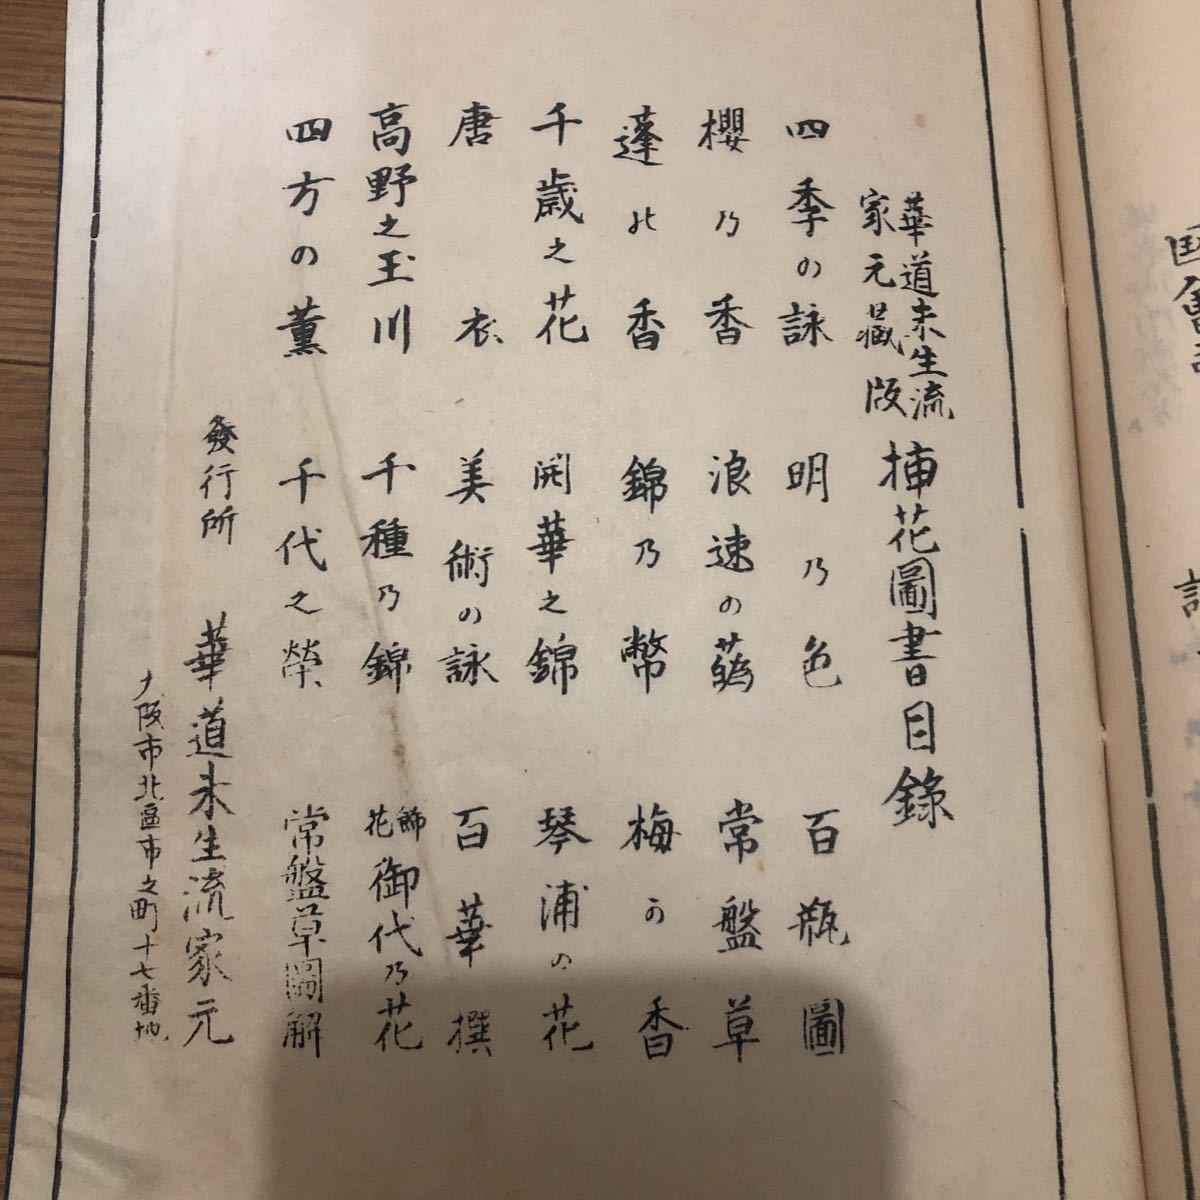 華道未生流
家元藏版
挿花圖書目錄
四季の詠　明乃色　百瓶圖
櫻乃香　浪速の　常盤草
蓬乃香　錦乃幣　梅の香
千歲之花　開華之錦　琴浦の花
唐衣　美術の詠　百華撰
高野之玉川　千種乃錦　飾花御代乃花
四方の薫　千代之榮　常盤草圖解
發行所　華道未生流家元
大阪市北區市之町十七番地